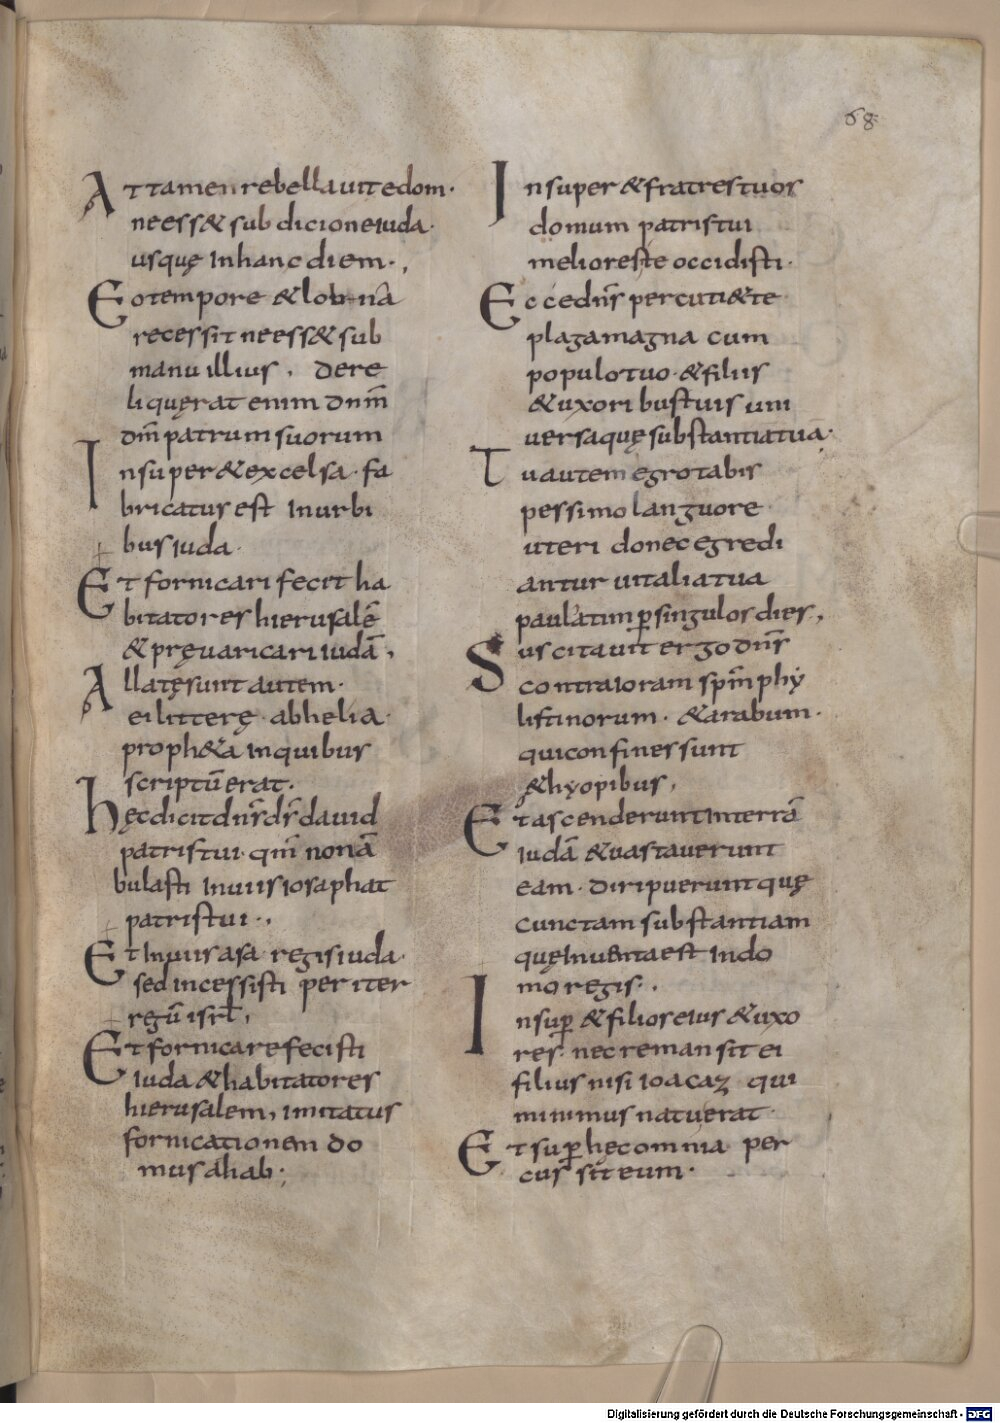 68
Attamen rebellauit edom·
ne ess& sub dicione iuda·
usquę in hanc diem·,
Eo tempore & lobna
recessit ne ess& sub
manu illius, dere
liquęrat enim dnm̄
dm̄ patrum suorum
Insuper & excelsa· fa
bricatus est in urbi
bus iuda·
Et fornicari fecit ha
bitatores hierusalē
& pręuaricari iudā,
Allatę sunt autem·
ei litterę· ab helia·
proph&a in quibus
scriptū erat·
hęc dicit dn̄s dś dauid
patris tui· qm̄ non ā
bulasti in uiis iosaphat
patris tui·,
Et in uiis asa· regis iuda·
sed incessisti per iter
regū isrl̄,
Et fornicare fecisti
iuda & habitatores
hierusalem, imitatus
fornicationem do
mus ahab;
Insuper & fratres tuos
domum patris tui
meliores te occidisti·
Ecce dn̄s percuti& te
plaga magna cum
populo tuo· & filiis
& uxoribus tuis uni
uersaquę substantia tua·
Tu autem egrotabis
pessimo languore
uteri donec egredi
antur uitalia tua
paulatim p̱ singulos dies,
Suscitauit ergo dn̄s
contra ioram spm̄ phy
listinorum· & arabum·
qui confines sunt
&hyopibus,
Et ascenderunt in terrā
iudā & uastauerunt
eam· diripueruntquę
cunctam substantiam
quę inuenta est in do
mo regis·,
Insup̱ & filios eius & uxo
res nec remansit ei
filius nisi ioacaz qui
minimus natu erat·
Et sup̱ hęc omnia per
cussit eum·
Digitalisierung gefördert durch die Deutsche Forschungsgemeinschaft - DFG